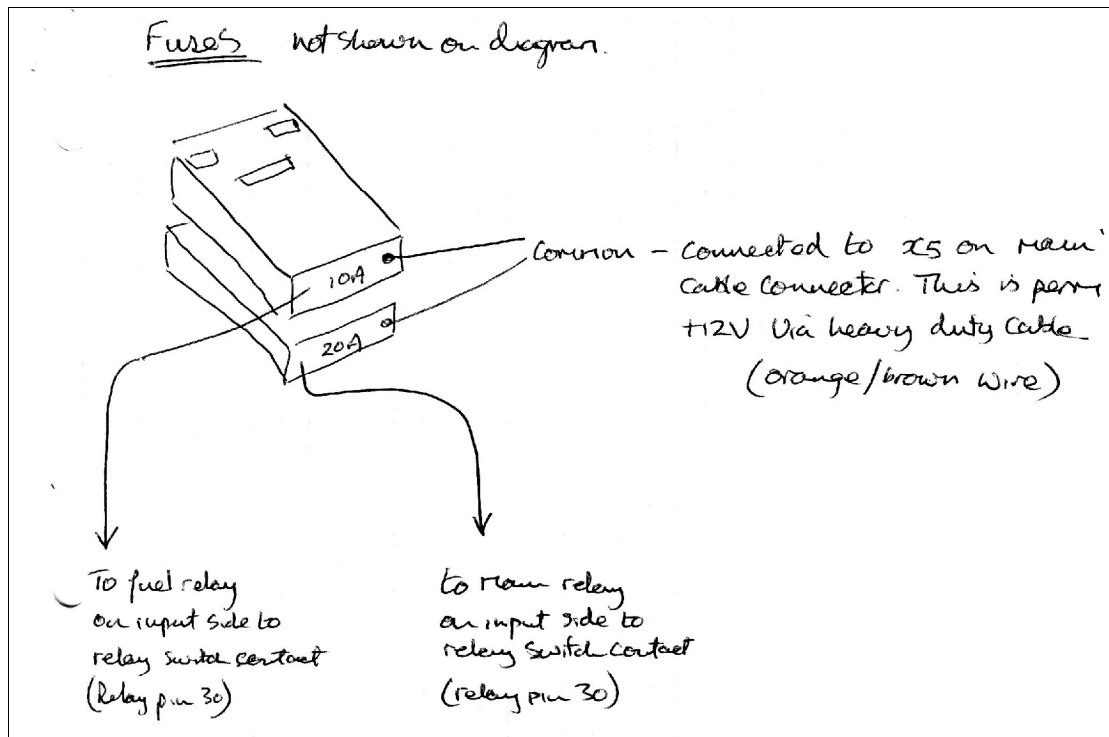 Fuses not shown on diagram.
10A
20A
Common - connected to x5 on main
cable connector. This is perm
+12V via heavy duty cable
(orange/brown wire)
To fuel relay
on input side to
relay switch contact
(Relay pin 30)
to main relay
on input side to
relay switch contact
(relay pin 30)